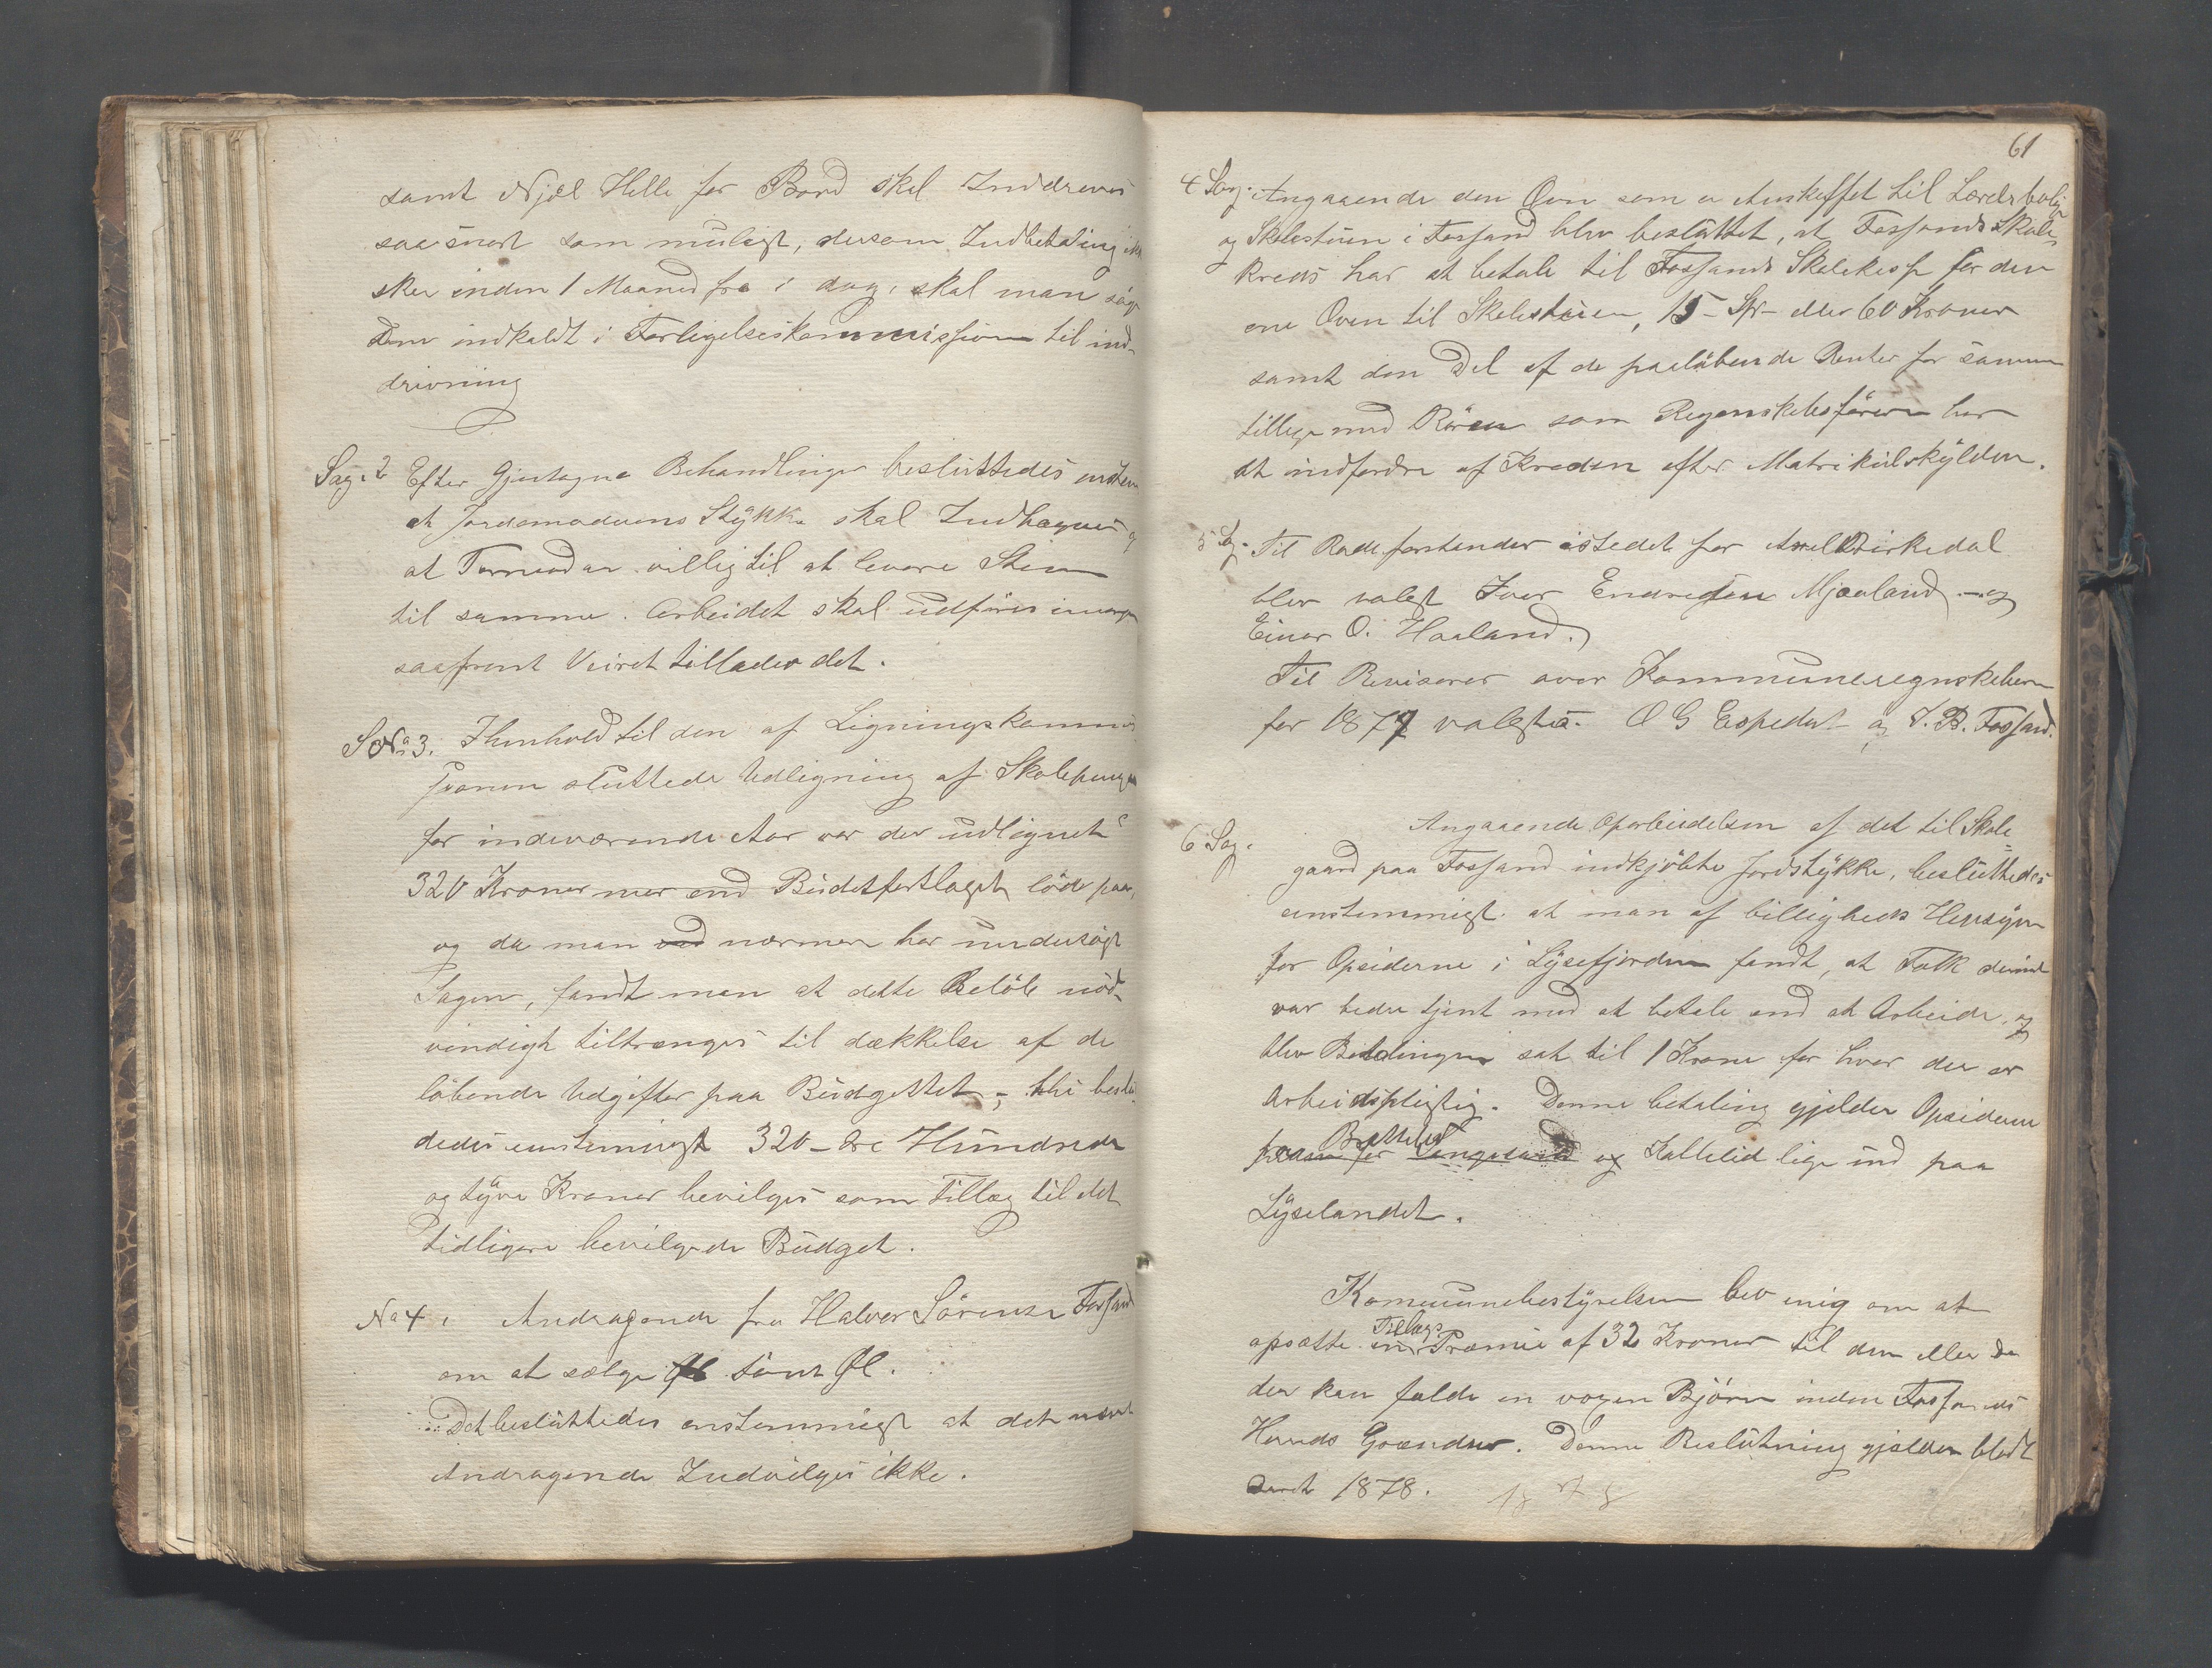 samt Njål Helle for Bord skal Inddreves
saasnart som muligt, dersom Indbetaling ikke
sker inden 1 Maaned fra i dag, skal man søge
Dem indkaldt i Forligelseskommissionen til ind-
drivning
Sag. 2 Efter Gjentagne Behandlinger besluttedes
at Jordemoderens Stykke skal Indhegnes og
at Formand er villig til at levere Steen
til samme. Arbeidet skal udføres imorgen
saafremt Veiret tillader det.
S No 3. I henhold til den af Ligningskommis
sionen sluttede Udligning af Skolepenge
for indeværende Aar var der udlignet
320 Kroner mer end Budgetforslaget løde paa,
og da man nærmere har undersøgt
Sagen, fandt man at dette Beløb nød-
vendigt tiltrænges til dækkelse af de
løbende Udgifter paa Budgettet, thi beslut
tedes enstemmigt 320 - tre Hundrede
og tyve Kroner bevilges som Tillæg til det
tidligere bevilgede Budget.
No 4, Andragende fra Halvor Sørensen Fossand
om at sælge Øl samt Øl.
Det besluttedes enstemmigt at det nævnte
Andragende Indvilges ikke.
61
4 Sag. Angaaende den Ovn som er Anskaffet til Lærerbolig
og Skolestuen i Fossand blev besluttet, at Fossands Skole
kreds har at betale til Fossands Skolekasse for den
ene Oven til Skolestuen, 15 - Spr - eller 60 Kroner
samt den Del af de paaløbende Renter for samme
tillige med Røren som Regnskabsføreren har
at indfordre af Kredsen efter Matrikulskylden.
5 Sag. Til Rodeforstander istedet for Axel Birkedal
blev valgt Iver Endresen Mjaaland og
Einar O. Haaland.
Til Revisorer over Kommuneregnskaberne
for 1877 valgtes. O G Espedal og T. B. Fossand.
6 Sag.
Angaaende Oparbeidelsen af det til Skole
gaard paa Fossand indkjøbte Jordstykke, besluttedes
enstemmigt at man af billigheds Hensyn
for Opsiderne i Lysefjorden fandt, at Folk derind
var bedre tjent med at betale end at Arbeide, og
blev Betalingen sat til 1 Krone for hver der er
Arbeidspligtig. Denne betaling gjelder Opsiderne
Bratteli
fra Songesand og Kallelid lige ind paa
Lyselandet.
Kommunebestyrelsen blev enig om at
Tillægs
opsætte en Præmie af 32 Kroner til den eller de
der kan fælde en voxen Bjørn inden Fossands
Herreds Grændser. Denne Beslutning gjelder blodt
Aaret 1878.